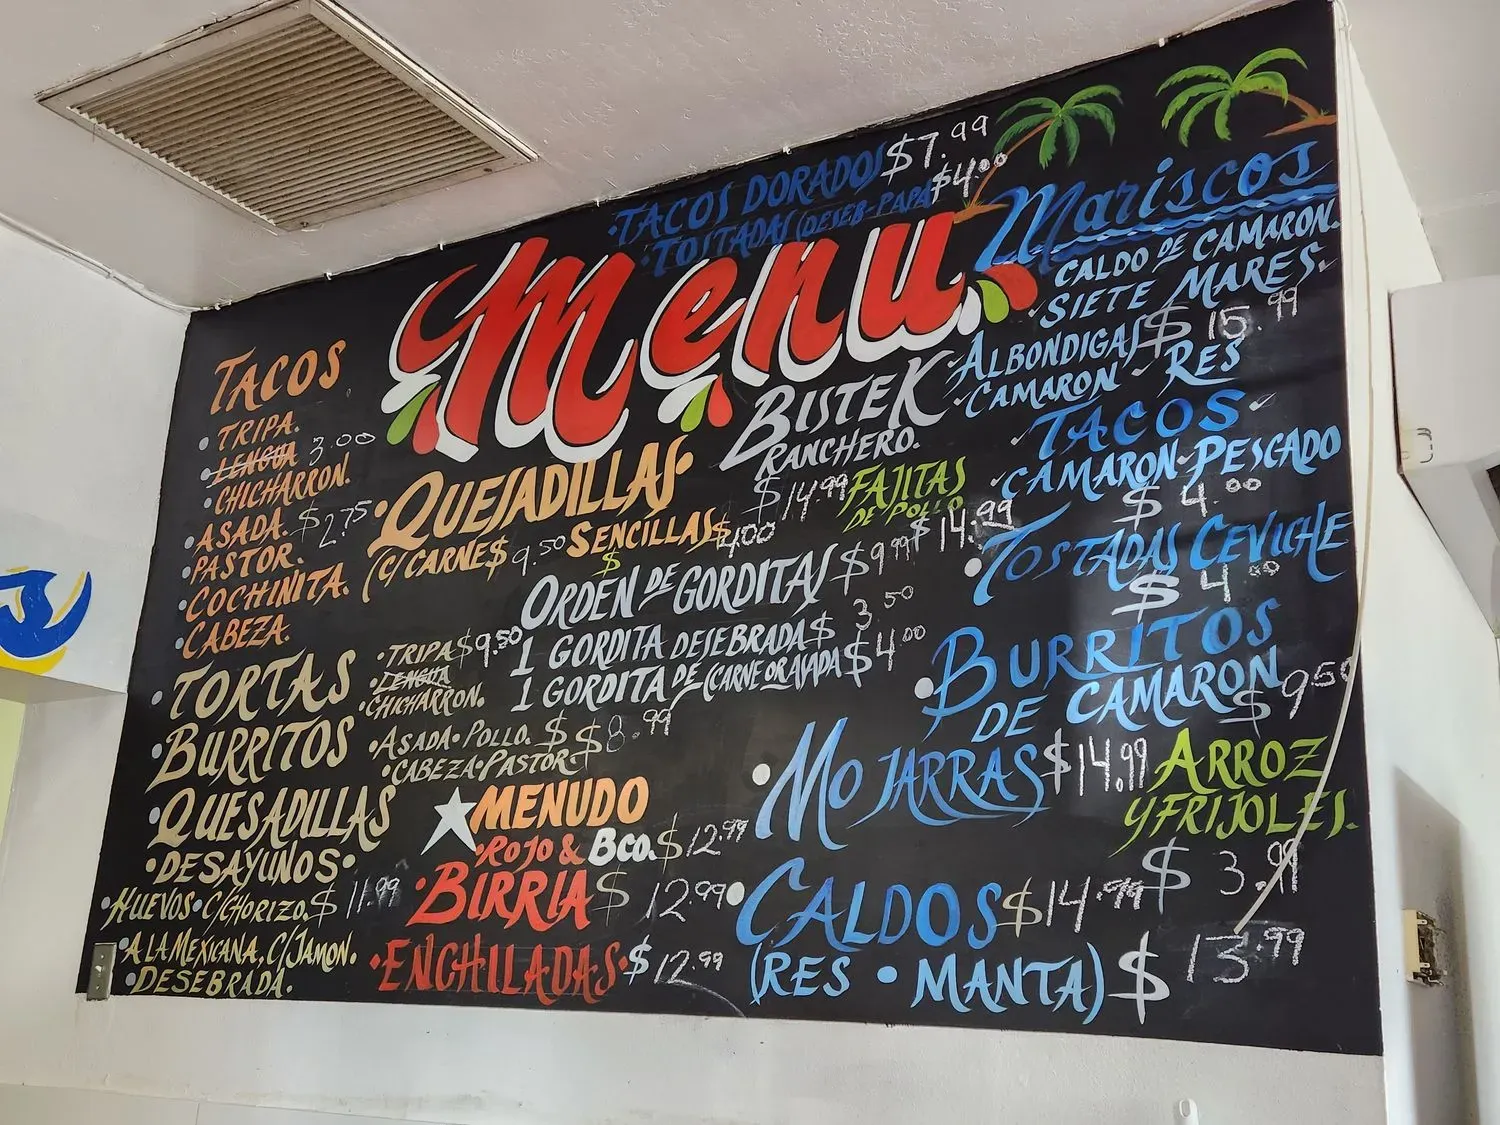 • TACOS DORADOS $7.99
• TOSTADAS (DESEB-PAPA $4.00
Menu
TACOS
• TRIPA.
• LENGUA 3.00
• CHICHARRON.
• ASADA. $2.75
• PASTOR.
• COCHINITA.
• CABEZA.
• QUESADILLAS•
(C/CARNE $9.50 SENCILLAS $4.00
$
BISTEK
RANCHERO.
$14.99
FAJITAS
DE POLLO
$14.99
ORDEN DE GORDITAS $9.99
1 GORDITA DESEBRADA $3.50
1 GORDITA DE (CARNE OR ASADA $4.00
• TORTAS
• BURRITOS
• QUESADILLAS
• TRIPA $9.50
• LENGUA
• CHICHARRON.
• ASADA • POLLO. $ $8.99
• CABEZA • PASTOR
• DESAYUNOS •
• HUEVOS • C/CHORIZO. $11.99
• A LA MEXICANA, C/JAMON.
• DESEBRADA.
MENUDO
• ROJO & BCO. $12.99
• BIRRIA $12.99
• ENCHILADAS • $12.99
Mariscos
CALDO DE CAMARON.
• SIETE MARES.
$15.99
• ALBONDIGAS
CAMARON - RES
• TACOS
CAMARON • PESCADO
$4.00
• TOSTADAS CEVICHE
$4.00
• BURRITOS
DE CAMARON
$9.50
• MOJARRAS $14.99
ARROZ
Y FRIJOLES.
$3.99
• CALDOS $14.99
(RES • MANTA) $13.99